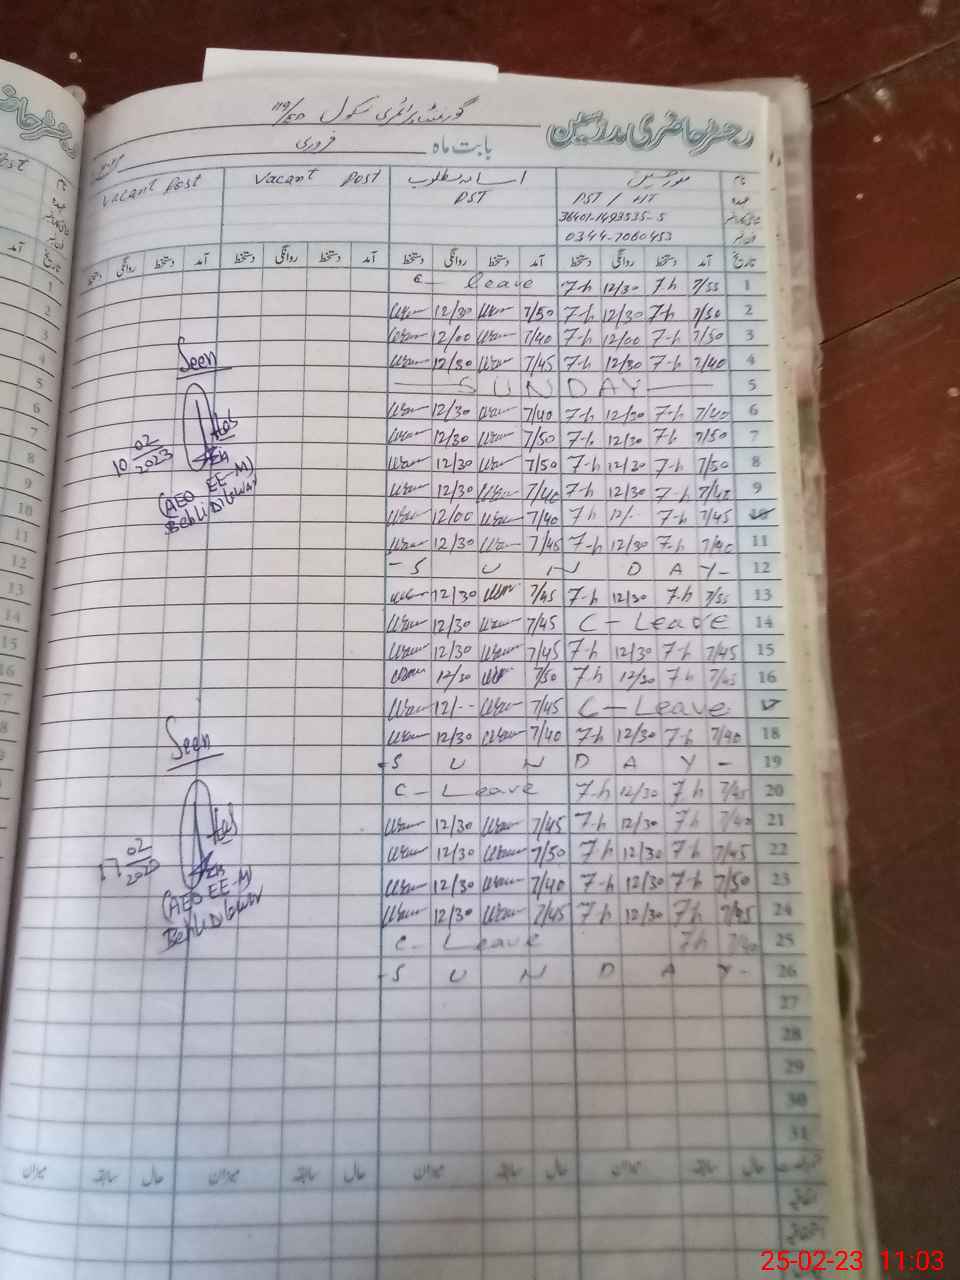 رجسٹر حاضری مدرسین گورنمنٹ پرائمری سکول 119/EB
بابت ماہ فروری
نام Vacant Post Vacant Post
عہدہ PST / HT PST
36401-1493535-5
0344-7060453
تاریخ آمد دستخط روانگی دستخط آمد دستخط روانگی دستخط آمد دستخط روانگی دستخط آمد دستخط روانگی دستخط
1 7/55 7-h 12/30 7-h C- Leave
2 7/50 7-h 12/30 7-h 7/50 12/30
3 7/50 7-h 12/00 7-h 7/40 12/00
4 7/40 7-h 12/30 7-h 7/45 12/30
5 SUNDAY
6 7/40 7-h 12/30 7-h 7/40 12/30
7 7/50 7-h 12/30 7-h 7/50 12/30
8 7/50 7-h 12/30 7-h 7/50 12/30
9 7-h 12/30 7-h 7/40 12/30
10 7/45 7-h 12/- 7-h 7/40 12/00
11 7/40 7-h 12/30 7-h 7/45 12/30
12 - S U N D A Y -
13 7/55 7-h 12/30 7-h 7/45 12/30
14 C - Leave 7/45 12/30
15 7/45 7-h 12/30 7-h 7/45 12/30
16 7/45 7-h 12/30 7-h 7/50 12/30
17 C - Leave 7/45 12/--
18 7/40 7-h 12/30 7-h 7/40 12/30
19 - S U N D A Y -
20 7/45 7-h 12/30 7-h C - Leave
21 7/40 7-h 12/30 7-h 7/45 12/30
22 7/45 7-h 12/30 7-h 7/50 12/30
23 7/50 7-h 12/30 7-h 7/40 12/30
24 7/45 7-h 12/30 7-h 7/45 12/30
25 7/40 7h C - Leave
26 - S U N D A Y -
27
28
29
30
31
حال سابقہ میزان حال سابقہ میزان حال سابقہ میزان حال سابقہ میزان
Seen
10 02
2023
(AEO EE-M)
Behli Dilawar
Seen
17 02
2023
(AEO EE-M)
Behli Dilawar
25-02-23 11:03